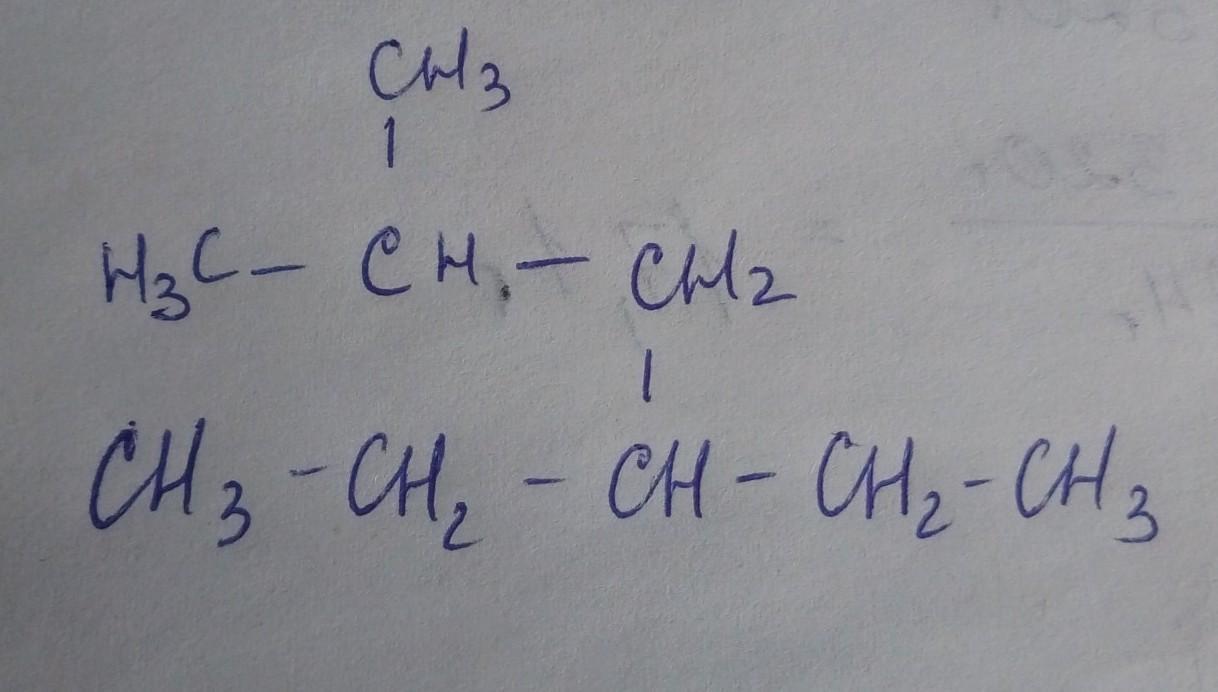 CH3
|
H3C - CH - CH2
|
CH3 - CH2 - CH - CH2 - CH3